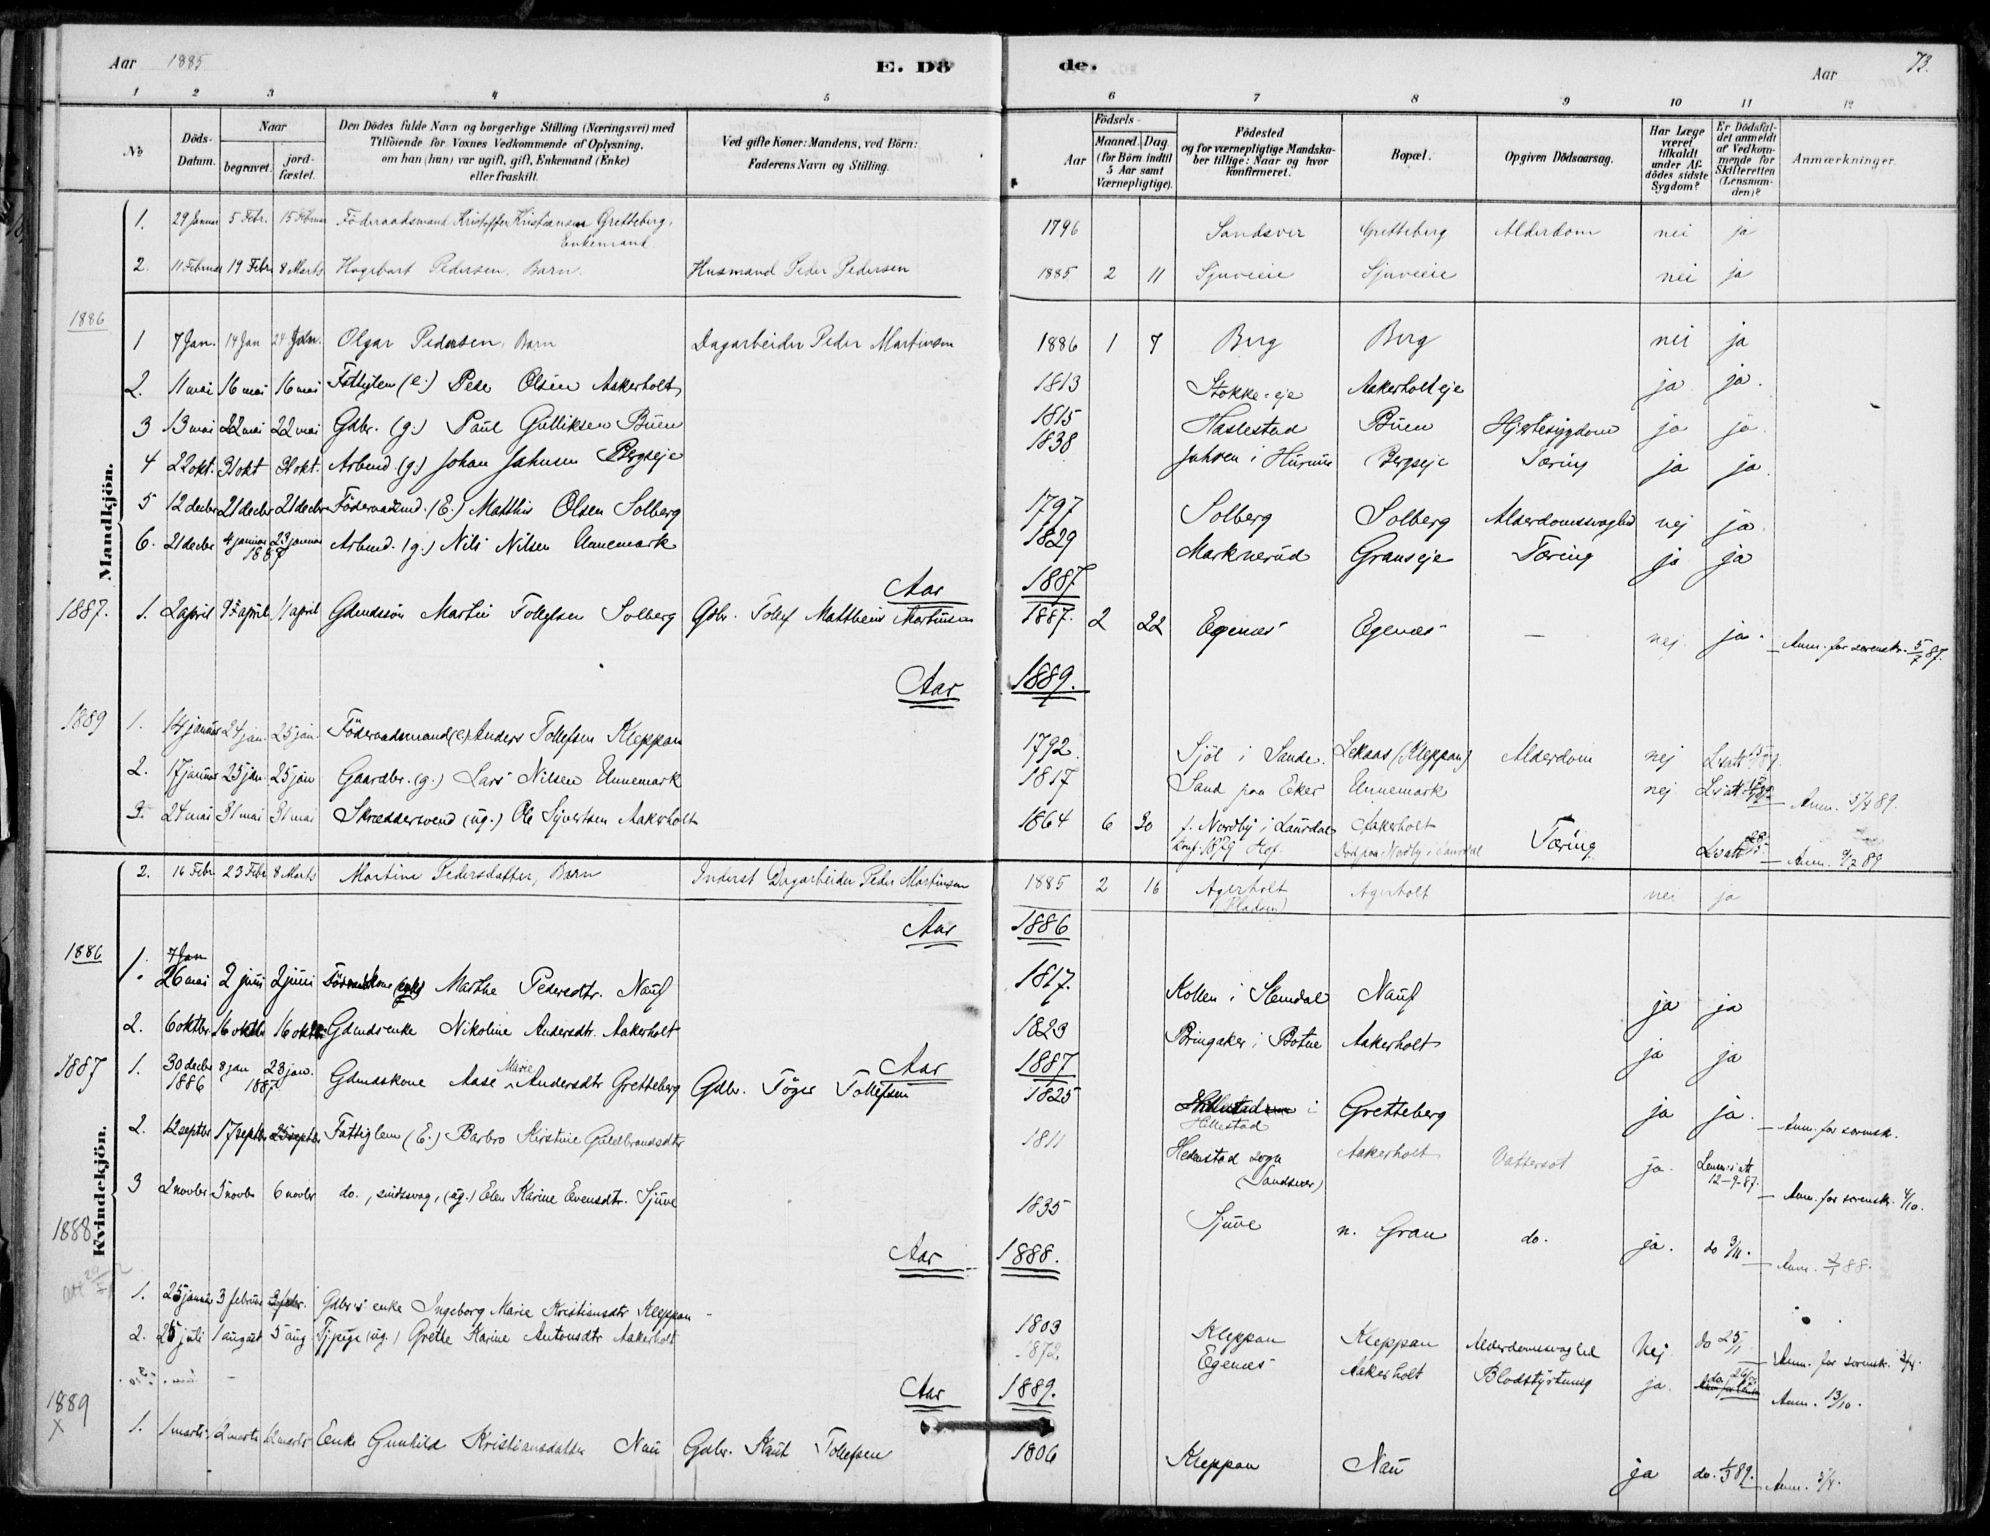 Aar 1885 E. Dö de. Aar 73.
1 2 3 4 5 6 7 8 9 10 11 12
No Döds-Datum. Naar begravet. jord-fæstet. Den Dödes fulde Navn og borgerlige Stilling (Næringsvei) med Tilföiende for Voxnes Vedkommende af Oplysning, om han (hun) var ugift, gift, Enkemand (Enke) eller fraskilt. Ved gifte Koner: Mandens, ved Börn: Faderens Navn og Stilling. Födsels- Aar Maaned. Dag. (for Börn indtil 5 Aar samt Værnepligtige). Födested og for værnepligtige Mandskaber tillige: Naar og hvor konfirmeret. Bopæl. Opgiven Dödsaarsag. Har Læge været tilkaldt under Afdödes sidste Sygdom? Er Dödsfaldet anmeldt af Vedkommende for Skifteretten (Lensmanden)? Anmærkninger.
Mandkjön.
1. 29 Januar 5 Febr. 15 Februar Föderaadsmand Kristoffer Kristiansen Gretteberg, 1796 Sandsver Gretteberg Alderdom nei ja
Enkemand
2. 11 Februar 19 Febr 8 Marts Hagbart Pedersen, Barn. Husmand Peder Pedersen 1885 2 11 Sjuveie Sjuveie nei ja
1886
1 7 Jan. 14 Jan 24 Jan. Olgar Pedersen, Barn Dagarbeider Peder Martinsen 1886 1 7 Berg Berg nei ja
2. 11 mai 16 mai 16 mai Fattiglem (e.) Peder Olsen Aakerholt 1813 Stokke-eje Aakerholteje ja ja.
3 13 mai 22 mai 22 mai Gdbr. (g.) Paul Gulliksen Buen 1815 Haslestad Buen Hjertesygdom ja ja.
4 22 okt. 31 okt 31 okt. Arbmd. (g.) Johan Jahnsen Bergseje 1838 Jahren i Hurum Bergseje Tæring ja ja.
5 12 decbr 21 decbr 21 decbr Föderaadsmd. (E.) Matthis Olsen Solberg 1797 Solberg Solberg Alderdomssvaghed nej ja.
6. 21 decbr 4 januar 23 januar Arbmd. (g.) Nils Nilsen Unnemark 1829 Marknerud Granseje Tæring ja ja
1887
Aar 1887
1887. 1. 2 april 9 april 11 april Gdmdssön Martin Tollefsen Solberg Gdbr. Tollef Matthias Martinsen 1887. 2 22 Egenæs Egenæs — nej. ja. Anm. for sorenskr. 5/7 87.
Aar 1889.
1889 1. 14 januar 24 jan. 25 jan. Föderaadsmand (e.) Anders Tollefsen Kleppan 1792. Sjöl i Sande. Lekaas (Kleppan) Alderdom nej
2. 17 januar 25 jan. 25 jan Gaardbr. (g.) Lars Nilsen Unnemark 1817 Sand paa Eker Unnemark nej Anm. 5/4 89.
3. 24 mai 31 mai 31 mai Skræddersvend (ug.) Ole Syvertsen Aakerholt 1864 6 20 f. Nordby i Laurdal Aakerholt Tæring Anm. 9/7 89
konf. 1879 Hof. Död paa Nordby i Laurdal
Kvindekjön.
2. 16 Febr 23 Febr 8 Marts Martine Pedersdatter, Barn Inderst Dagarbeider Peder Martinsen 1885 2 16 Agerholt Agerholt nei ja
(Pladsen)
Aar 1886
1886 7 Jan
1. 26 mai 2 juni 2 juni Marthe Pedersdtr. Nauf 1817. Kollen i Stemdal Nauf ja ja
2. 6 oktbr 16 oktbr 16 oktbr Gdmdsenke Nikoline Andersdtr. Aakerholt 1823 Bringaker i Botne Aakerholt ja ja
Aar 1887
1887 1. 30 decbr 1886 8 jan 23 jan. 1887 Gdmdskone Aase Marie Andersdtr Gretteberg Gdbr. Töger Tollefsen 1825 i Hillestad Gretteberg ja ja. Anm. for sorensk.
2. 12 septbr 17 septbr 25 septbr Fattiglem (E.) Barbro Kirstine Guldbrandsdtr 1811 Hedenstad sogn Aakerholt Vattersot ja. Lensm. att 12-9-87. Anm. for sorenskr. 4/10.
(Sandsver)
3 2 novbr 5 novbr 6 novbr do., sindssvag, (ug.) Elen Karine Evensdtr. Sjuve 1835 Sjuve n. Gran do. ja. do 3/11. Anm. 2/1 88.
1888 Aar 1888.
1. 25 januar 3 februar 3 febr. Gdbr's enke Ingeborg Marie Kristiansdtr Kleppan 1803 Kleppan Kleppan Alderdomssvaghed Nej do 25/1 Anm. for sorensk. 3/4.
2. 25 juli 1 august 5 aug Tj.pige (ug.) Grethe Karine Antonsdtr Aakerholt 1872. Egenæs Aakerholt Blodstyrtning ja. Anm. 13/10.
1889 Aar 1889.
x
1. 1 marts 12 marts 12 marts Enke Gunhild Kristiansdatter Nau Gdbr. Knut Tollefsen 1806 Kleppan Nau ja do. 1/3 89. Anm. 5/4.